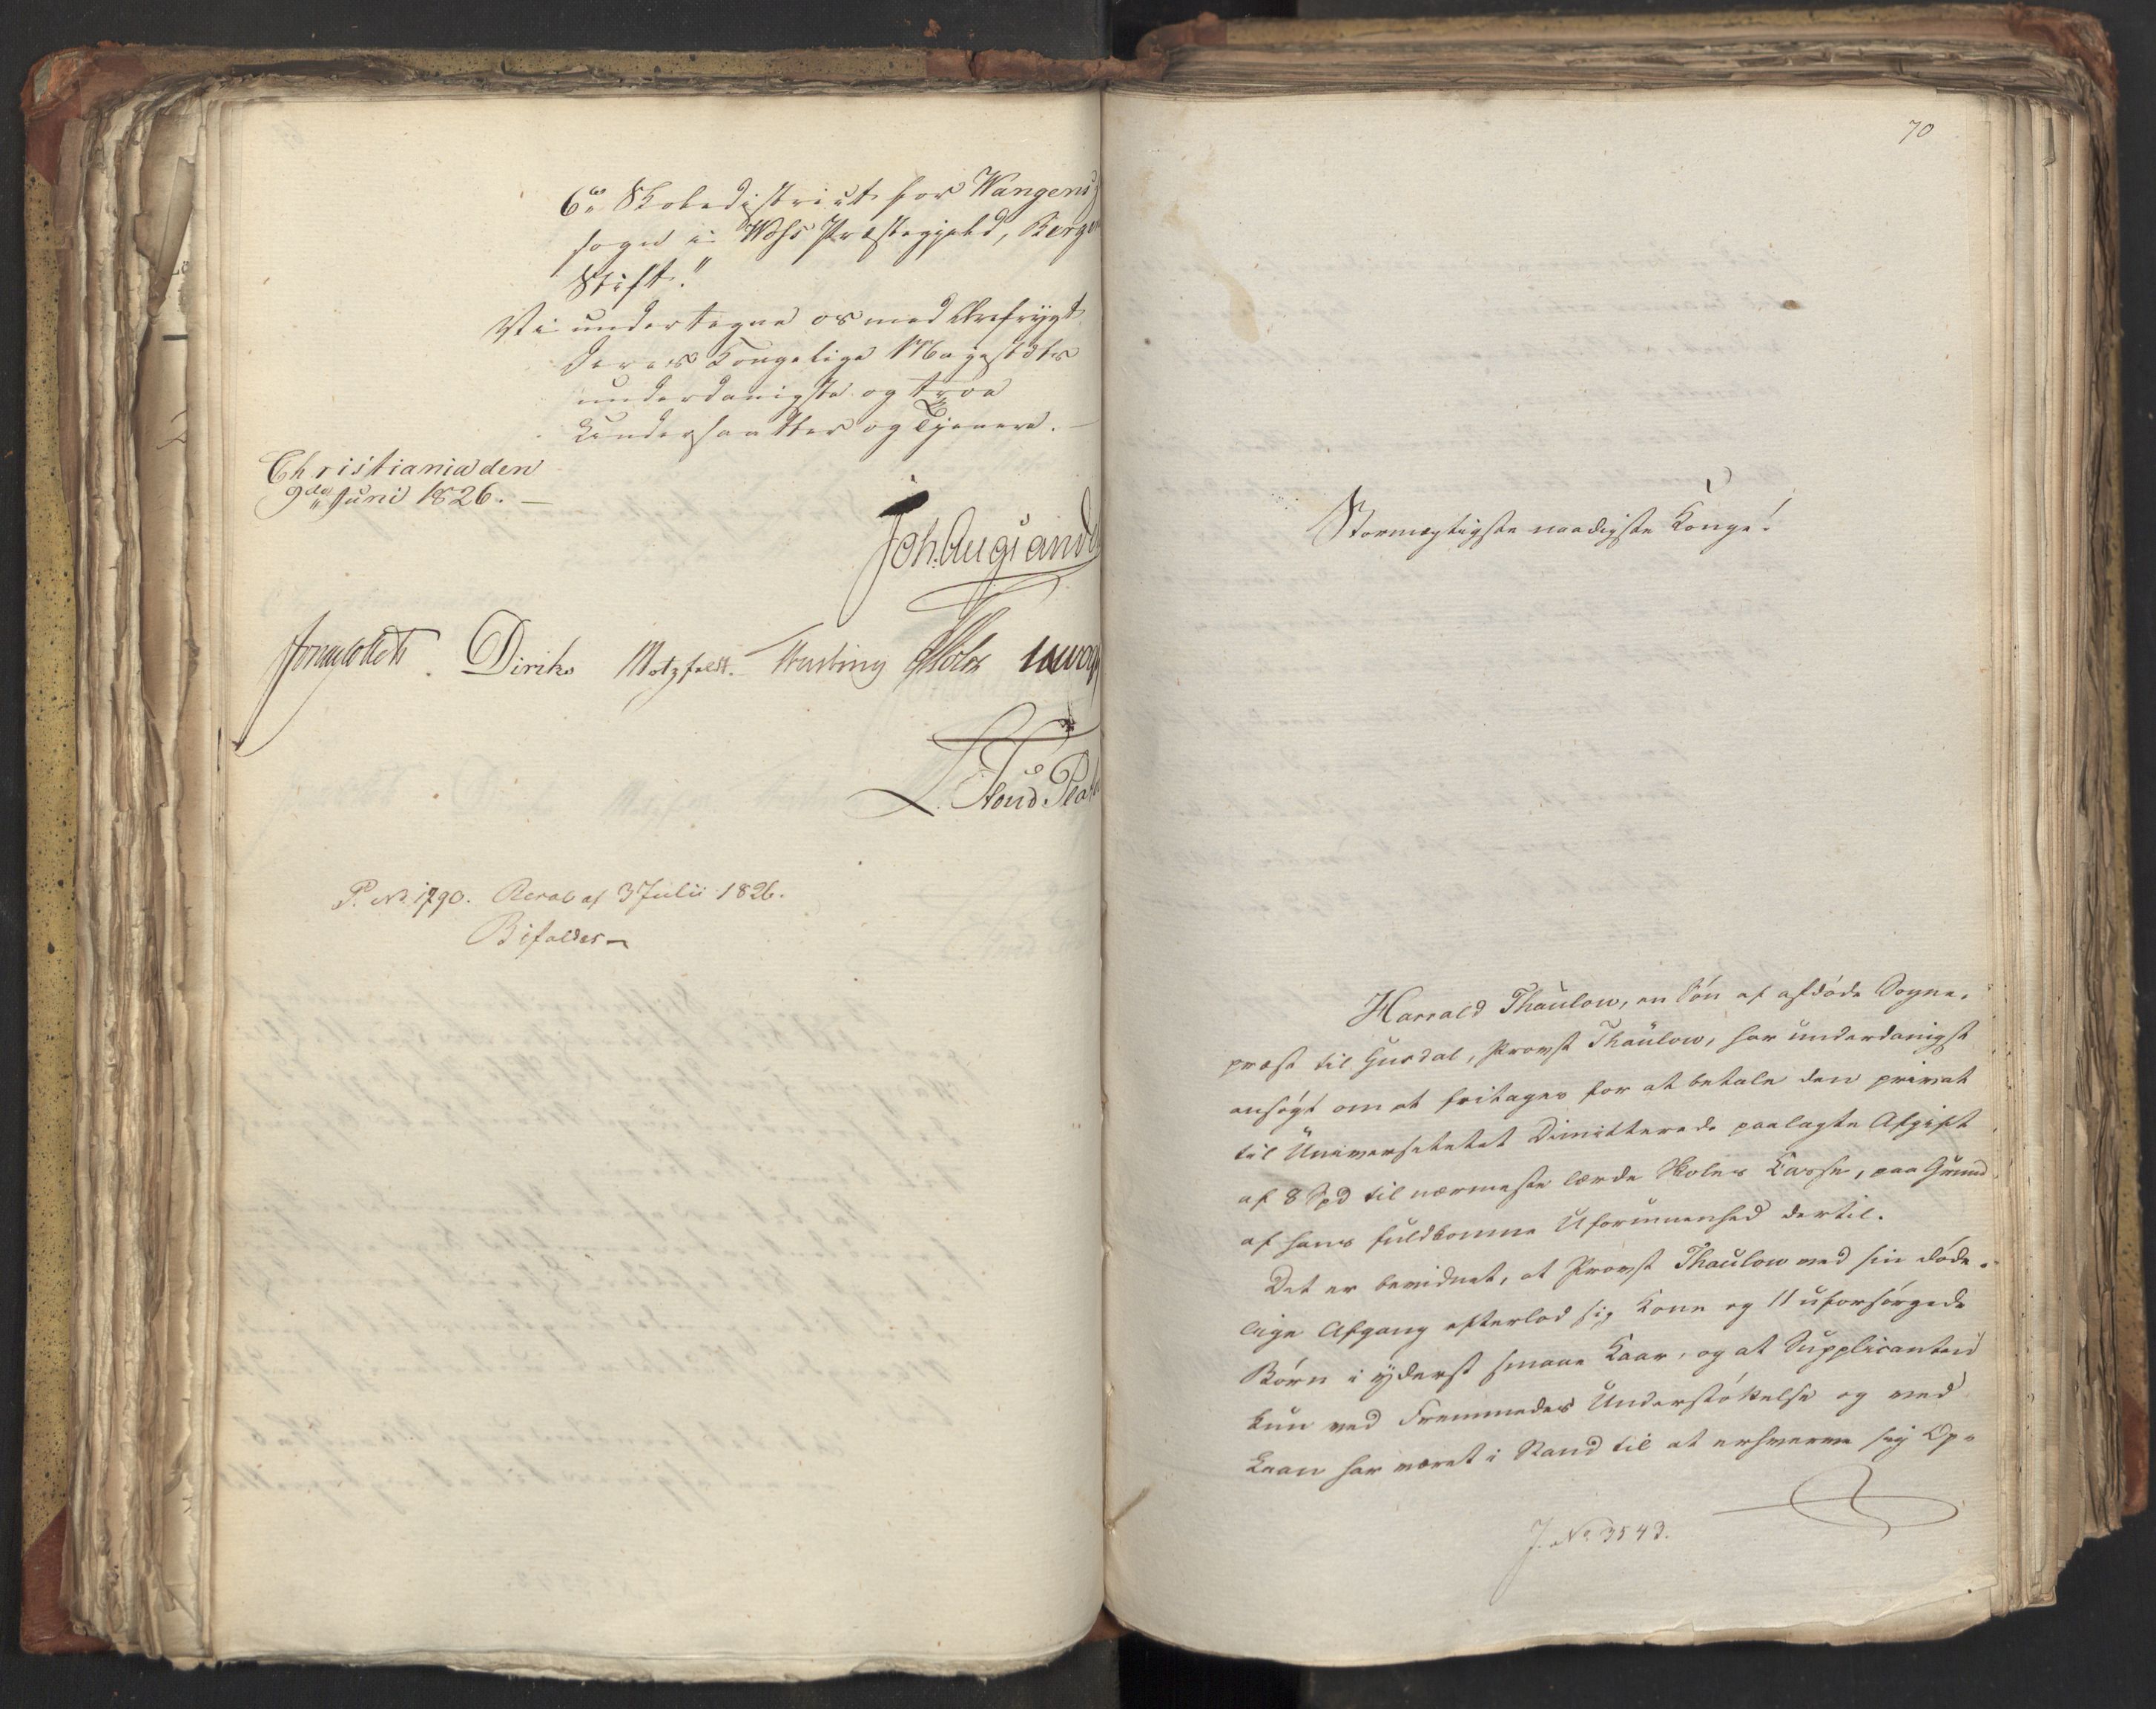 6te Skoledistrict for Wangens
sogn i Woss Præstegjeld, Bergen
Stift."
Vi undertegne os med Ærefrygt
Deres Kongelige Majestæts
underdanigste og troe
Undersaatter og Tjenere.
Christiania den
9de Juni 1826.
Joh. Aug. Sandels
Sommerhielm Diriks Motzfeldt. Krebs
L. Stoud Platou
P. No 1790. Resol af 3 Julii 1826.
Bifaldes
70
Stormægtigste naadigste Konge!
Harrald Thaulow, en Søn af afdøde Sogne-
præst til Gusdal, Provst Thaulow, har underdanigst
ansøgt om at fritages for at betale den privat
til Universitetet Dimitterede paalagte Afgift
af 8 Spd til nærmeste lærde Skoles Casse, paa Grund
af hans fuldkomne Uformuenhed dertil.
Det er bevidnet, at Provst Thaulow ved sin døde-
lige Afgang efterlod sig Kone og 11 uforsørgede
Børn i yderst smaae Kaar, og at Supplicanten
kun ved Fremmedes Understøttelse og ved
Laan har været i Stand til at erhverve sig Op-
J. No 3543.